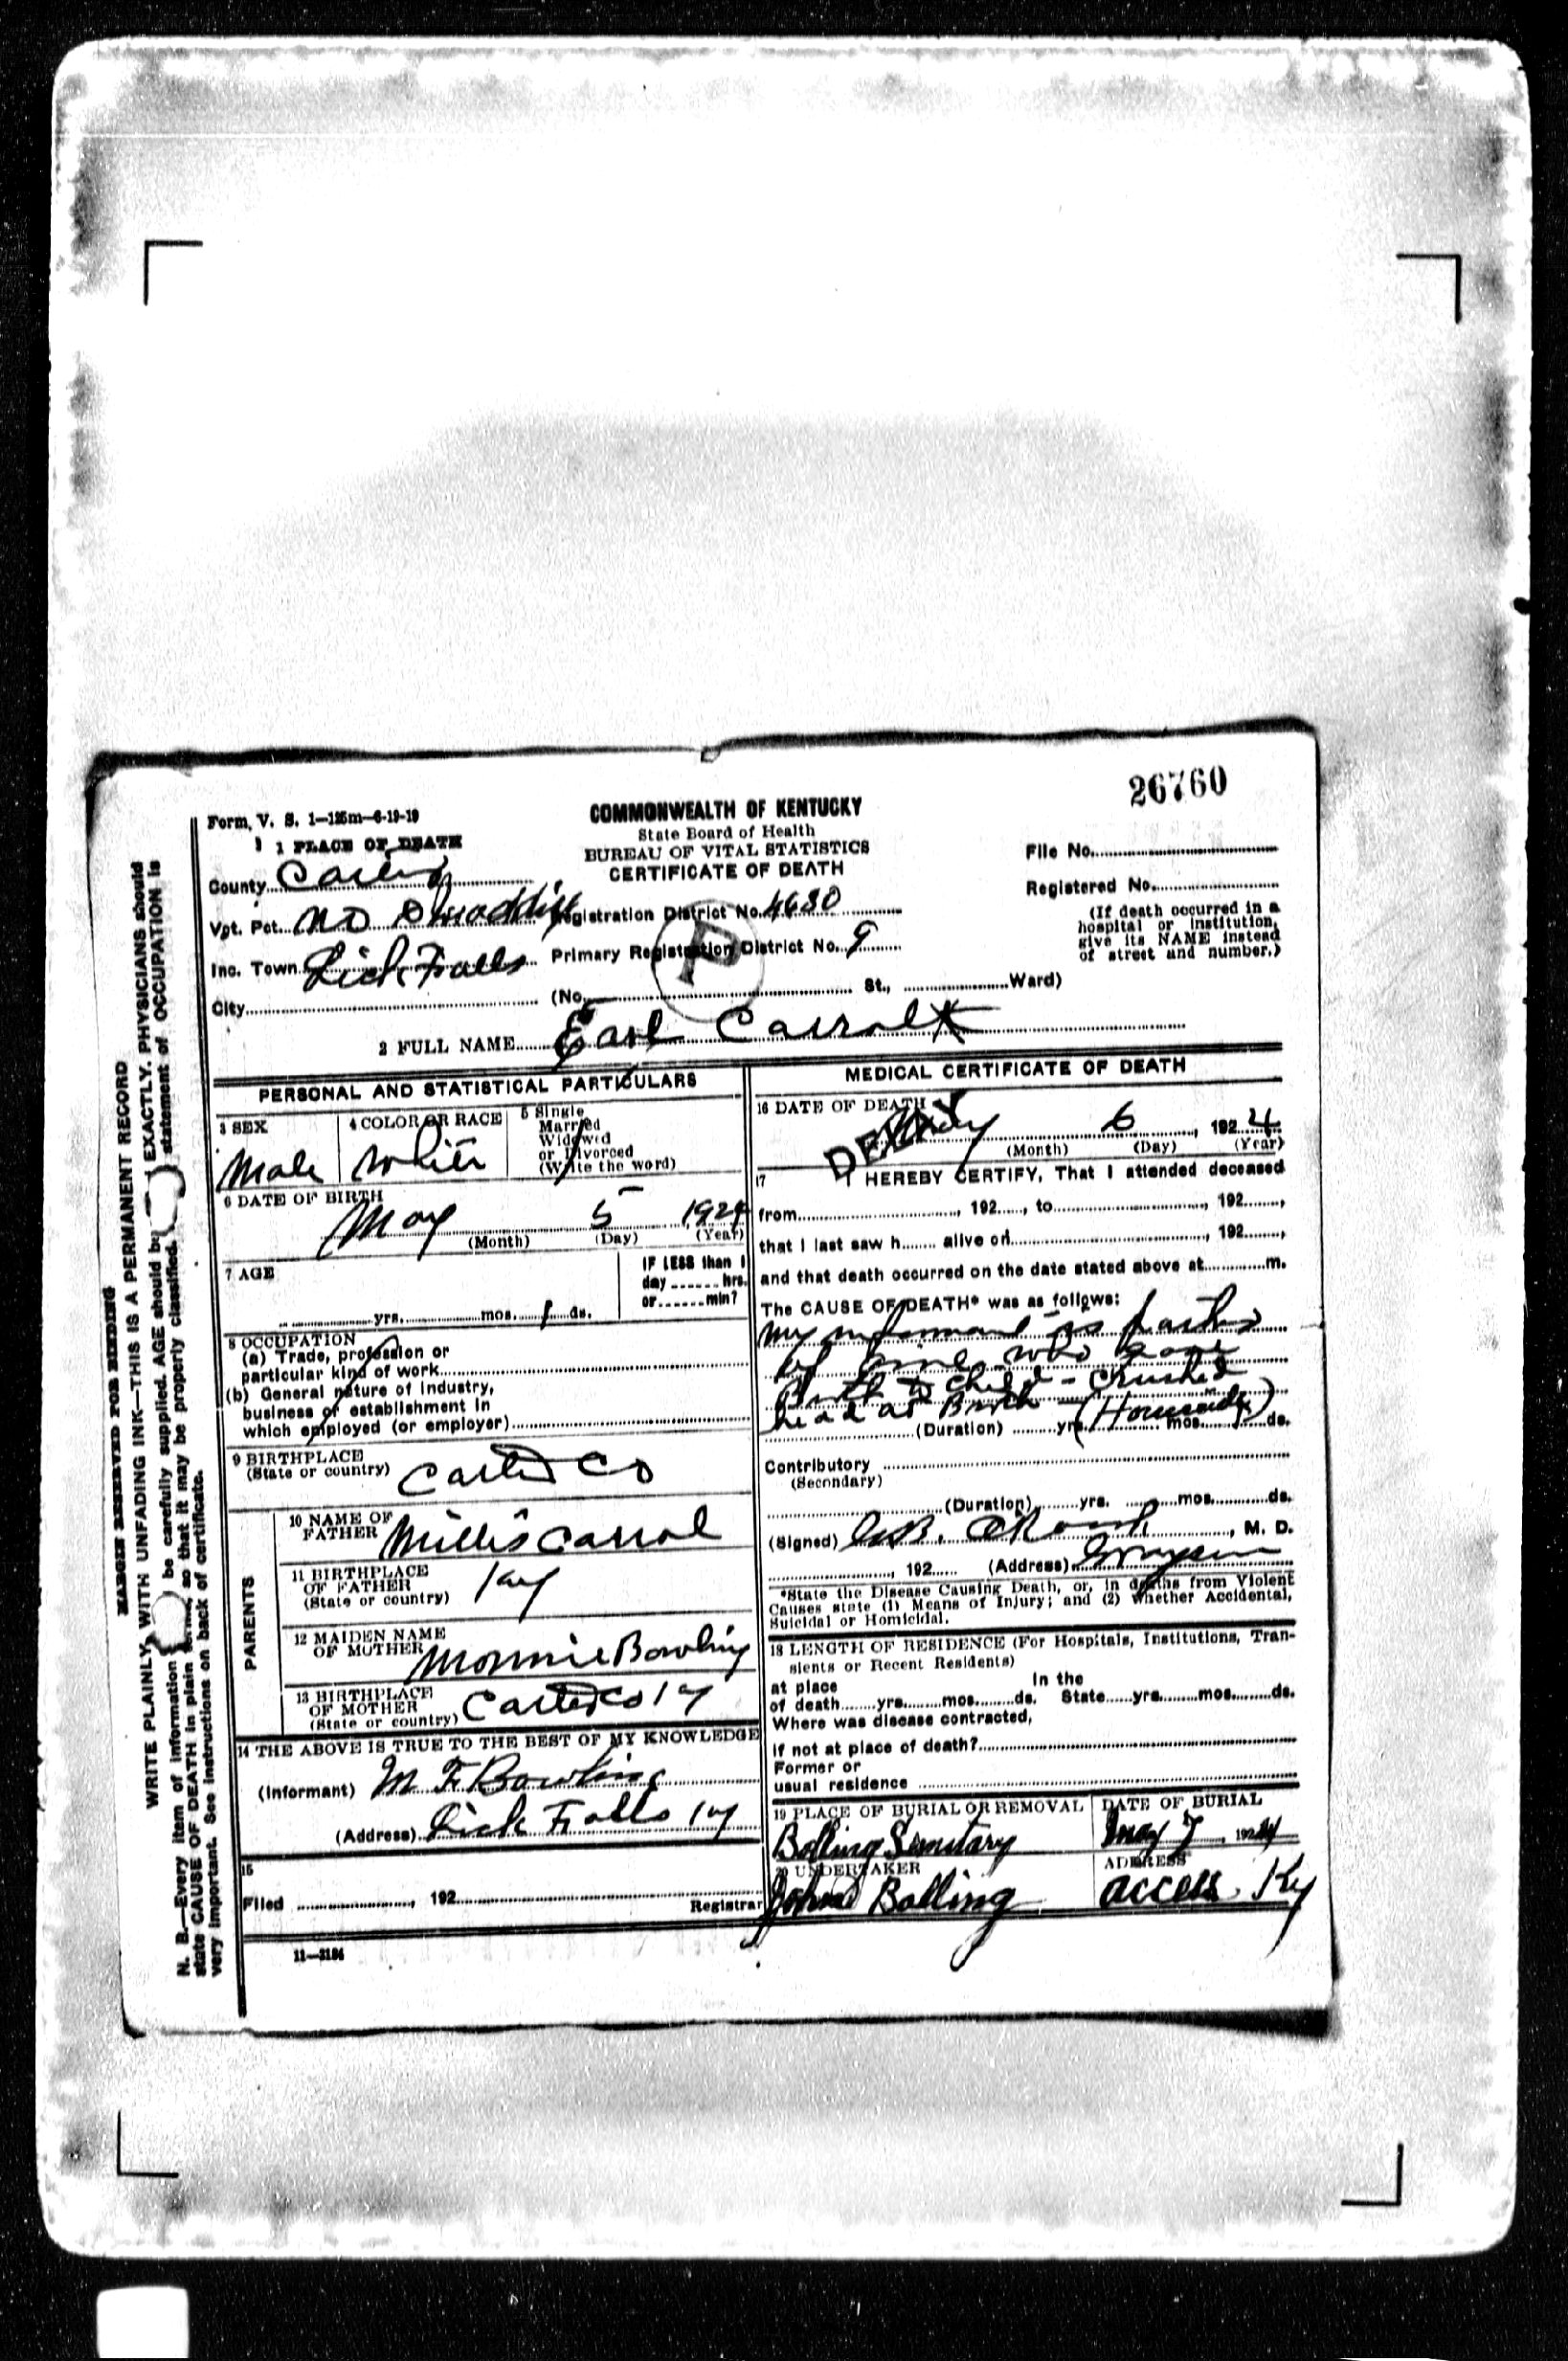 26760
Form. V. S. 1—125m—6-19-19
COMMONWEALTH OF KENTUCKY
State Board of Health
BUREAU OF VITAL STATISTICS
CERTIFICATE OF DEATH
1 PLACE OF DEATH
County Carter
Vpt. Pct. No
Inc. Town Lick Falls
City
Registration District No. 4680
Primary Registration District No. 9
(No. St., Ward)
P
File No.
Registered No.
(If death occurred in a
hospital or institution,
give its NAME instead
of street and number.)
2 FULL NAME Earl Carroll
PERSONAL AND STATISTICAL PARTICULARS
3 SEX
Male
4 COLOR OR RACE
White
5 Single
Married
Widowed
or Divorced
(Write the word)
6 DATE OF BIRTH
May 5 1924
(Month) (Day) (Year)
7 AGE
yrs. mos. 1 ds.
IF LESS than 1
day hrs.
or min?
8 OCCUPATION
(a) Trade, profession or
particular kind of work
(b) General nature of industry,
business or establishment in
which employed (or employer)
9 BIRTHPLACE
(State or country) Carter Co
PARENTS
10 NAME OF
FATHER Millis Carrol
11 BIRTHPLACE
OF FATHER
(State or country) Ky
12 MAIDEN NAME
OF MOTHER Monnie Bowling
13 BIRTHPLACE
OF MOTHER
(State or country) Carter Co Ky
14 THE ABOVE IS TRUE TO THE BEST OF MY KNOWLEDGE
(Informant) M F Bowling
(Address) Lick Falls Ky
15
Filed , 192
Registrar
11—3184
MEDICAL CERTIFICATE OF DEATH
16 DATE OF DEATH
May 6, 1924
(Month) (Day) (Year)
DELAY
17 I HEREBY CERTIFY, That I attended deceased
from , 192 , to , 192 ,
that I last saw h alive on , 192 ,
and that death occurred on the date stated above at m.
The CAUSE OF DEATH* was as follows:
My informant is
of who gave
Birth to child - crushed
head at Birth - (Homicide)
(Duration) yrs. mos. ds.
Contributory
(Secondary)
(Duration) yrs. mos. ds.
(Signed) , M. D.
, 192 (Address) Grayson
*State the Disease Causing Death, or, in deaths from Violent
Causes state (1) Means of Injury; and (2) whether Accidental,
Suicidal or Homicidal.
18 LENGTH OF RESIDENCE (For Hospitals, Institutions, Tran-
sients or Recent Residents)
at place In the
of death yrs. mos. ds. State yrs. mos. ds.
Where was disease contracted,
if not at place of death?
Former or
usual residence
19 PLACE OF BURIAL OR REMOVAL
Bolling Semitary
DATE OF BURIAL
May 7, 1924
20 UNDERTAKER
John Bolling
ADDRESS
Access Ky
MARGIN RESERVED FOR BINDING
WRITE PLAINLY, WITH UNFADING INK—THIS IS A PERMANENT RECORD
N. B.—Every item of information should be carefully supplied. AGE should be stated EXACTLY. PHYSICIANS should
state CAUSE OF DEATH in plain terms, so that it may be properly classified. Exact statement of OCCUPATION is
very important. See instructions on back of certificate.